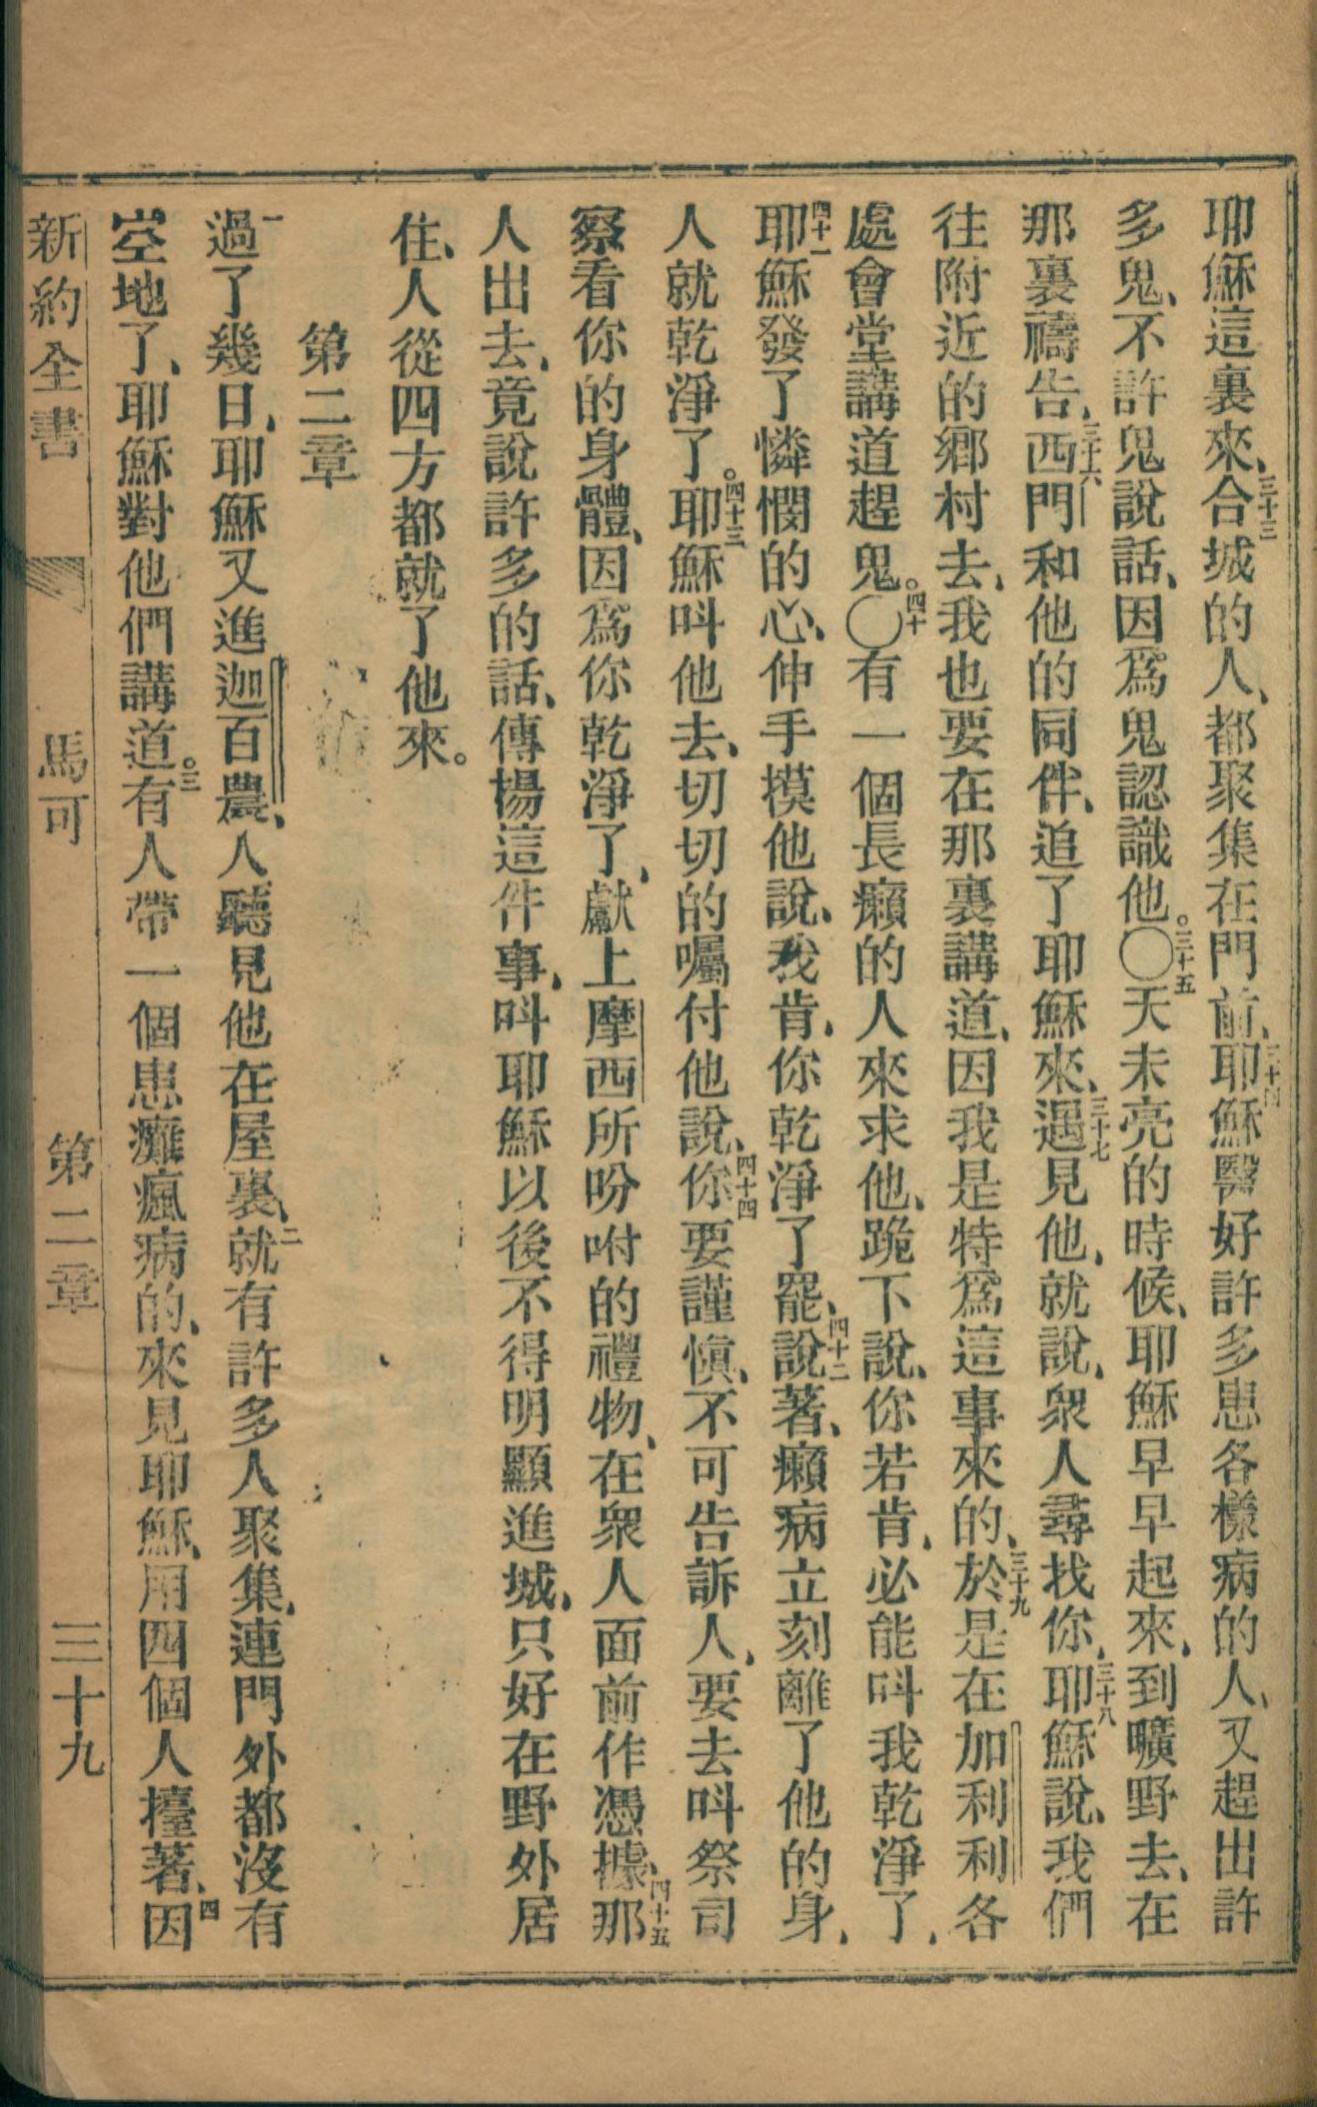 耶穌這裏來、三十三合城的人、都聚集在門前、三十四耶穌醫好許多患各樣病的人、又趕出許
多鬼、不許鬼說話、因爲鬼認識他。三十五〇天未亮的時候、耶穌早早起來、到曠野去、在
那裏禱告、三十六西門和他的同伴、追了耶穌來、三十七遇見他、就說、衆人尋找你、三十八耶穌說、我們
往附近的鄉村去、我也要在那裏講道、因我是特爲這事來的、三十九於是在加利利各
處會堂講道趕鬼。四十〇有一個長癩的人來求他、跪下說、你若肯、必能呌我乾淨了、
四十一耶穌發了憐憫的心、伸手摸他說、我肯、你乾淨了罷、四十二說著、癩病立刻離了他的身、
人就乾淨了。四十三耶穌呌他去、切切的囑付他說、四十四你要謹愼、不可告訴人、要去呌祭司
察看你的身體、因爲你乾淨了、獻上摩西所吩咐的禮物、在衆人面前作憑據、四十五那
人出去、竟說許多的話、傳揚這件事、呌耶穌以後不得明顯進城、只好在野外居
住、人從四方都就了他來。
第二章
一過了幾日、耶穌又進迦百農、人聽見他在屋裏、二就有許多人聚集、連門外都沒有
空地了、耶穌對他們講道。三有人帶一個患癱瘋病的、來見耶穌、用四個人擡著、四因
新約全書 馬可 第二章 三十九